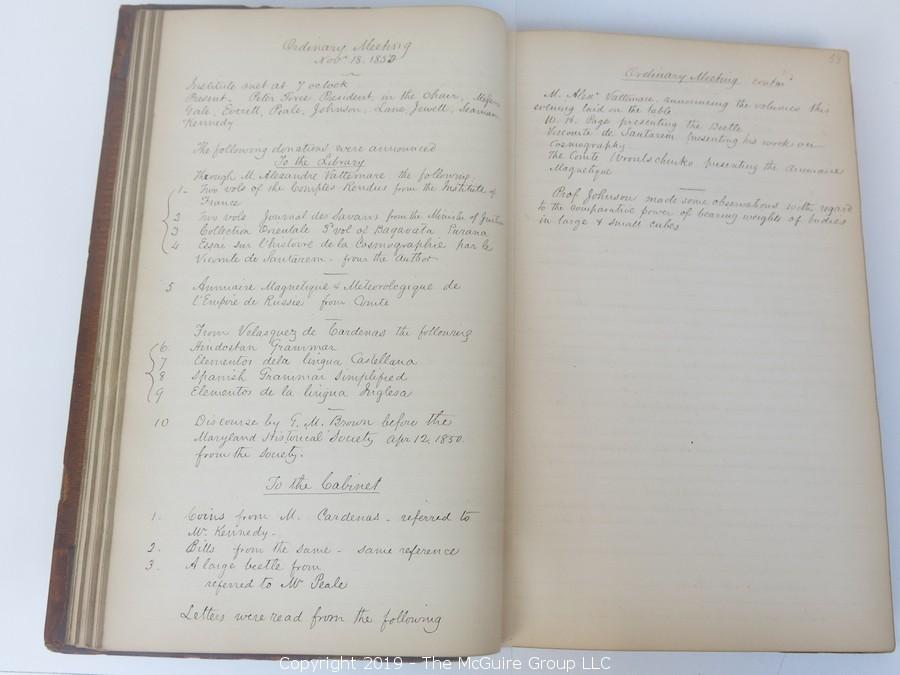 Ordinary Meeting
Nov. 18. 1850
Institute met at 7 oclock
Present Peter Force President in the Chair, Messrs
Vale, Everett, Peale, Johnson, Lane Jewett, Seaman
Kennedy
The following donations were announced
To the Library
Through M. Alexandre Vattemare the following.
1 Two vols of the Comptes Rendus from the Institute of
France
2 Two vols Journal des Savans from the Minister of Justice
3 Collection Orientale 3d vol of Bagavata Purana
4 Essai sur l'histoire de la Cosmographie par le
Vicomte de Santarem - from the author
5 Annuaire Magnetique & Meteorologique de
l'Empire de Russie from Comte
From Velasquez de Cardenas the following
6. Hindostan Grammar
7 Elementos dela lingua Castellana
8 Spanish Grammar Simplified
9 Elementos de la lingua Inglesa
10 Discourse by G. M. Brown before the
Maryland Historical Society Apr 12, 1850.
from the Society.
To the Cabinet
1. Coins from M. Cardenas - referred to
Mr Kennedy -
2. Bills from the same - same reference
3. A large beetle from
referred to Mr Peale
Letters were read from the following
53
Ordinary Meeting contd
M. Alexr Vattemare announcing the volumes this
evening laid on the table
W. H. Page presenting the Beetle
Viscomte de Santarem presenting his work on
Cosmography
The Comte Wrontschenko presenting the Annuaire
Magnetique
Prof Johnson made some observations with regard
to the comparative power of bearing weights of bodies
in large & small cubes
Copyright 2019 - The McGuire Group LLC